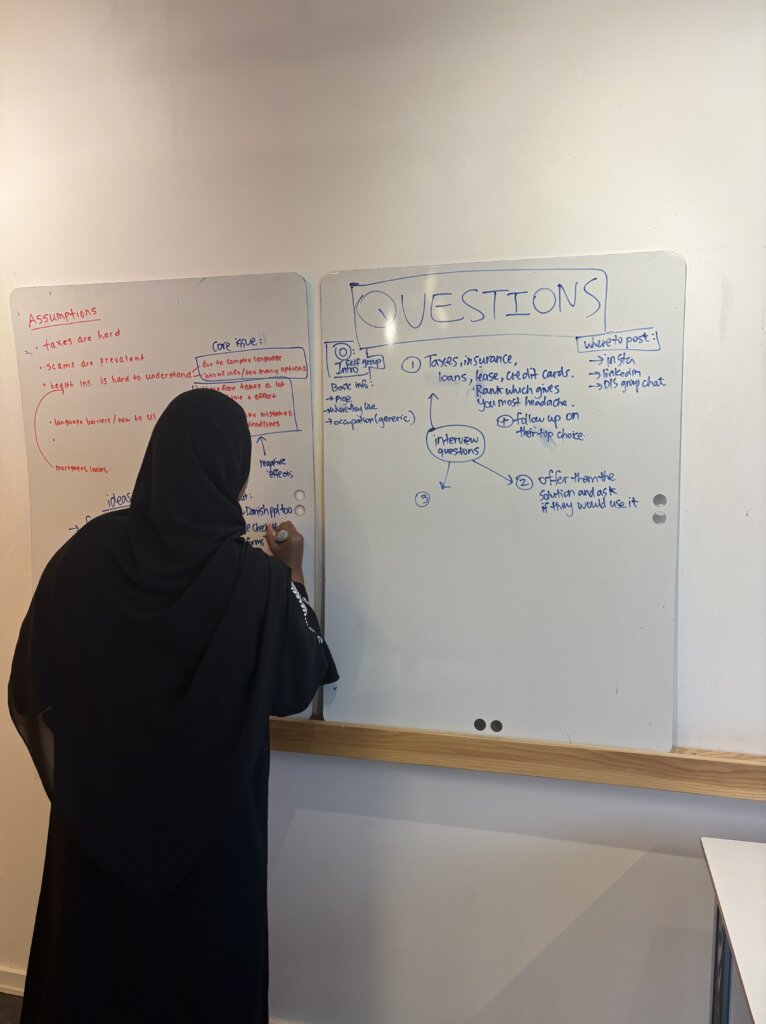 Assumptions
• taxes are hard
• scams are prevalent
• health ins. is hard to understand
• language barriers / new to US
•
mortgages leases
core issue:
due to complex language
lots of info / too many options
takes a lot
time + effort
mistakes
deadlines
negative
effects
ideas
Danish ppl too
check
forms
QUESTIONS
0
self group
intro
Basic info:
→ Age
→ where they live
→ occupation (generic)
1 Taxes, insurance,
loans, lease, credit cards.
Rank which gives
you most headache.
+ follow up on
their top choice
where to post:
→ insta
→ linkedin
→ DIS group chat
interview
questions
2 offer them the
solution and ask
if they would use it
3